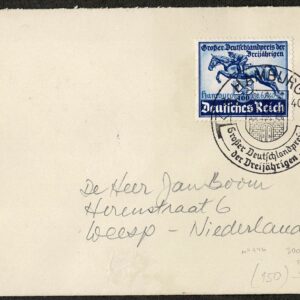 Großer Deutschlandpreis der
Dreijährigen
Deutsches Reich
HAMBURG
Großer Deutschlandpreis
der Dreijährigen
De Heer Jan Boom
Herenstraat 6
Weesp - Nederland
(150)-